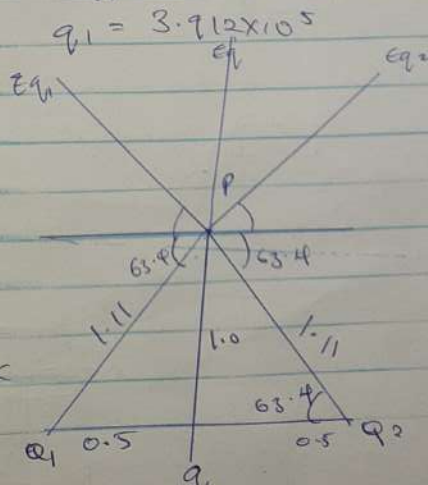 q1 = 3.912x10^5
Eq
Eq1
Eq2
P
63.4
63.4
1.11
1.0
1.11
63.4
Q1
0.5
0.5
Q2
q